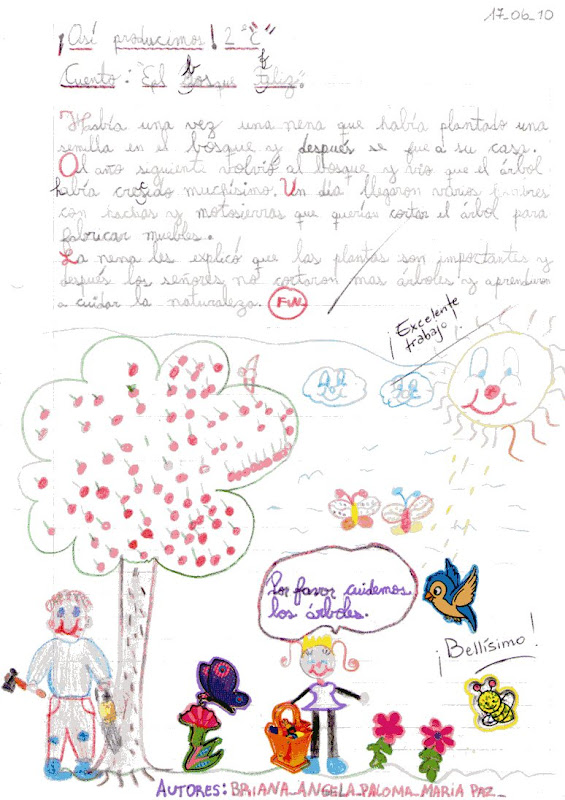 17_06_10
¡Así producimos! 2 "C"
Cuento: "El bosque feliz".
Había una vez una nena que había plantado una
semilla en el bosque y después se fue a su casa.
Al año siguiente volvió al bosque y vio que el árbol
había crecido muchísimo. Un día llegaron varios hombres
con hachas y motosierras que querían cortar el árbol para
fabricar muebles.
La nena les explicó que las plantas son importantes y
después los señores no cortaron mas árboles y aprendieron
a cuidar la naturaleza. FIN
¡Excelente
trabajo!
Por favor cuidemos
los árboles.
¡Bellísimo!
AUTORES: BRIANA_ANGELA_PALOMA_MARIA PAZ_